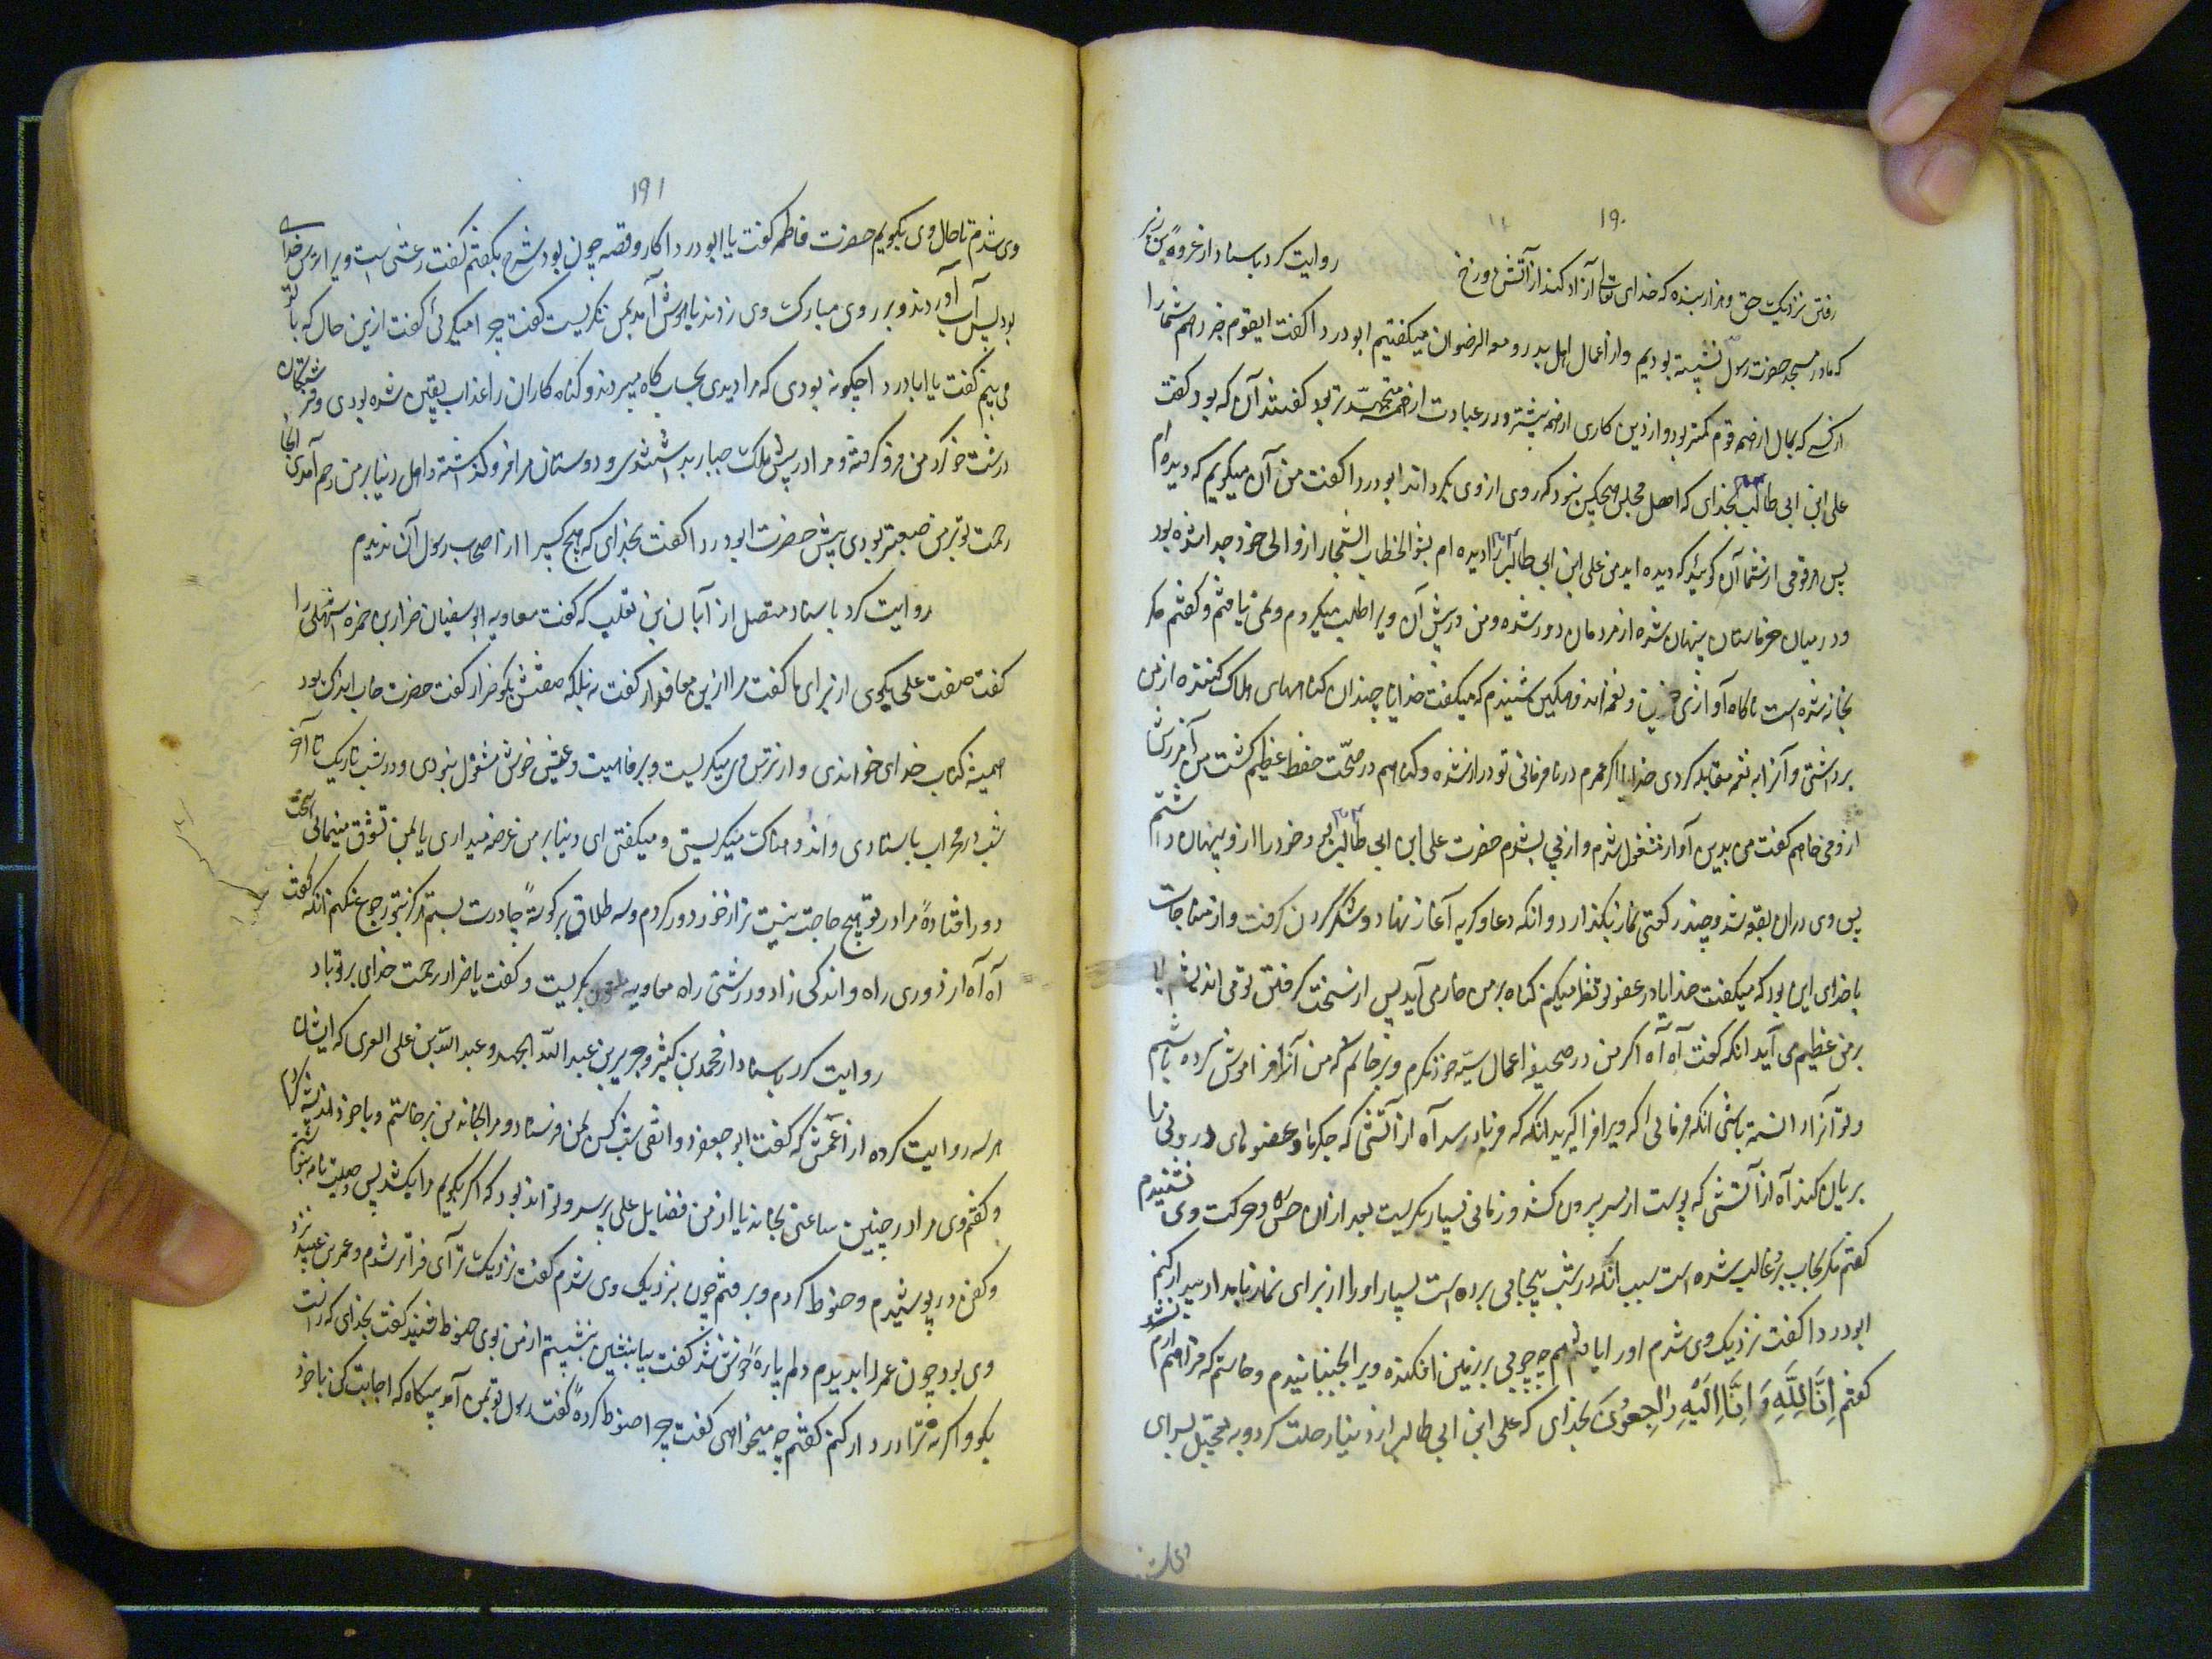 ۱۹۰
رفتن نزدیکیت حق و هزار بنده که خدای تعالی آزاد کند از آتش دوزخ روایت کرد باسناد از عروة بن زبیر
که ما در مسجد حضرت رسول نشسته بودیم و از اعمال اهل بدر و میکفتیم ابو دردا کفت ایقوم خبر دهم شما را
از کسی که بمال از همه قوم کمتر بود و از دین کاری از همه بیشتر و در عبادت از همه تر بود کفتند آن که بود کفت
علی ابن ابی طالب بخدای که اهل مجلس هیچکس نبود که روی از وی بگردانند ابو دردا کفت من آن میکویم که دیده ام
پس هر قومی از شما آن کوئید که دیده اید من علی ابن ابی طالب را دیده ام النجار از والی خود جدا شده بود
و در میان خرماستان پنهان شده از مردمان دور شده و من ویرا طلب میکردم و نمی یافتم و کفتم مکر
بخانه شده است ناکاه آوازی حزین و نغمه اندوهکین شنیدم که میکفت خدایا چندان کناههای هلاک کننده از من
برداشتی و آنرا به نعمه مقابله کردی خدایا اکر عمرم در نافرمانی تو دراز شده و کناهم در عظیم کشت من آمرزش
از تو می خواهم کفت من بدین آواز مشغول شدم و از پی بشدم حضرت علی ابن ابی طالب بود خود را از و پنهان داشتم
پس وی دران بقعه شد و چند رکعتی نماز بکذارد و انکه دعا و کریه آغاز نهاد و کرفت و از مناجات
با خدای این بود که میکفت خدایا در عفو تو نظر میکنم کناه بر من خوار می آید پس از سخت کرفتن تو می اندیشم بلا
بر من عظیم می آید انکه کفت آه آه اکر من در صحیفه اعمال سیه خود نکرم و برخوانم که من آنرا فراموش کرده باشم
و تو آنرا دانسته باشی انکه فرمائی که ویرا فرا کیرید انکه که فریاد رسد آه از آتشی که جکرها و عضوهای درونی را
بریان کند آه از آتشی که پوست از سر بیرون کشد و زمانی بسیار بکریست بعد ازان حس و حرکت وی نشنیدم
کفتم مکر خواب بر و غالب شده است سبب انکه در شب بیخوابی برده است بسیار او را از برای نماز بامداد بیدار کنم
ابو دردا کفت نزدیک وی شدم او را یافتم چوبی بر زمین افکنده ویرا بجنبانیدم و خواستم که فراهم آرم نشد
کفتم اِنّا لِلّهِ وَ اِنّا اِلَیْهِ راجِعُونَ بخدای که علی ابن ابی طالب از دنیا رحلت کرد و به تعجیل بسرای
۱۹۱
وی شدم تا حال وی بکویم حضرت فاطمه کفت یا ابو دردا کار و قصه چون بود شرح بکفتم کفت غشی است ویرا از ترس خدای
بود پس آب آوردند و بر روی مبارک وی زدند با هوش آمد بمن نکریست کفت چرا میکریی کفت ازین حال که با تو
می بینم کفت یا ابا دردا چکونه بودی که مرا دیدی بحساب کاه میبردند و کناه کاران را عذاب یقین شده بودی و فرشتکان
درشت خو کرد من فرو کرفته و مرا در پیش ملک جبار بداشتندی و دوستان مرا فرو کذاشته و اهل دنیا بر من رحم آمدی
رحمت تو بر من بودی بیش حضرت ابو دردا کفت بخدای که هیچ کسی را از اصحاب رسول آن ندیدم
روایت کرد باسناد متصل از آبان بن تغلب که کفت معاویه ابو سفیان ضرار بن ضمره را
کفت صفت علی بکوی از برای ما کفت مرا ازین معاف دار کفت نه بلکه صفتش بکو ضرار کفت حضرت بود
همیشه کتاب خدای خواندی و از ترس میکریست و برفاهیت و عیش خوش مشغول نبودی و در شب تاریک تا آخر
شب در محراب باستادی و اندوهناک میکریستی و میکفتی ای دنیا بر من عرضه میداری یا بمن تشوق مینمائی
دور افتاده مرا در تو هیچ حاجت نیست ترا از خود دور کردم و سه طلاق بر کوشه چادرت بستم هرکز بتو رجوع نکنم انکه کفت
آه آه از دوری راه و اندکی زاد و درشتی راه معاویه بکریست و کفت یا ضرار رحمت خدای بر تو باد
روایت کرد باسناد از محمد بن کثیر و جریر بن عبد الله و عبد الله بن علی که ایشان
هر سه روایت کرده از اعمش که کفت ابو جعفر دوانقی شب کس بمن فرستاد و مرا بخاند من برخاستم و با خود اندیشه کردم
و کفتم وی مرا در چنین ساعتی بخاند تا از من فضایل علی پرسد و تواند بود که اکر بکویم مرا بکشد پس وصیت نامه بنوشتم
و کفن در پوشیدم و حنوط کردم و برفتم چون نزدیک وی شدم کفت نزدیک تر آی فراتر شدم و عمر بن عبید نزد
وی بود چون عمر را بدیدم دلم پاره خوش شد کفت بیا بنشین بنشستم از من بوی حنوط شنید کفت بخدای که راست
بکو و اکر نه ترا بر دار کنم کفتم چه میخواهی کفت چرا حنوط کرده کفت رسول تو بمن آمد بیکاه که اجابت کن با خود